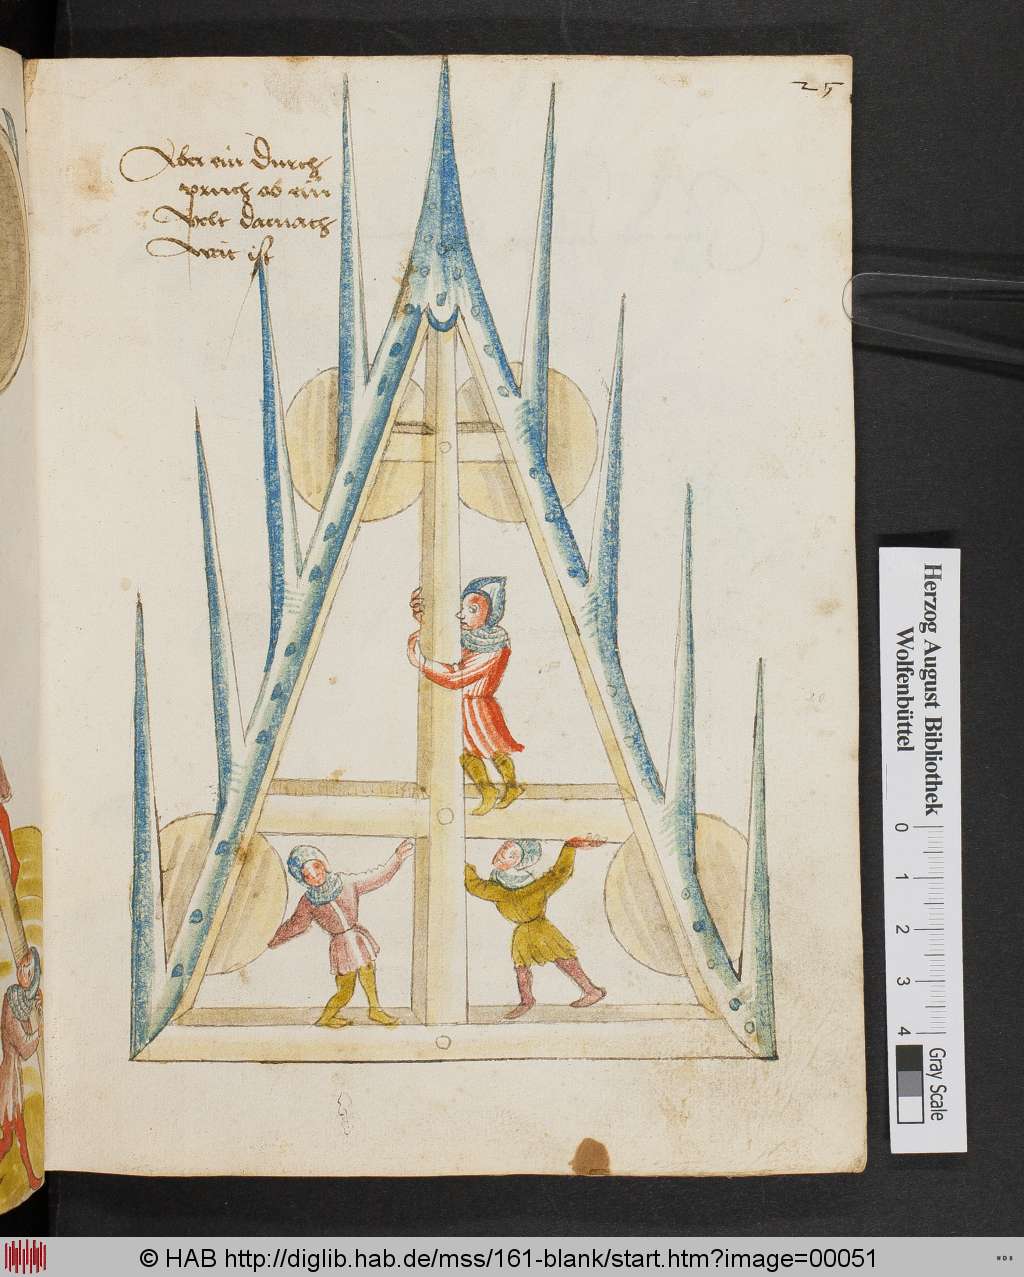 25
Aber ein durch
pruch ob ein
velt darnach
weit ist
Herzog August Bibliothek
Wolfenbüttel
0
1
2
3
4
Gray Scale
© HAB http://diglib.hab.de/mss/161-blank/start.htm?image=00051